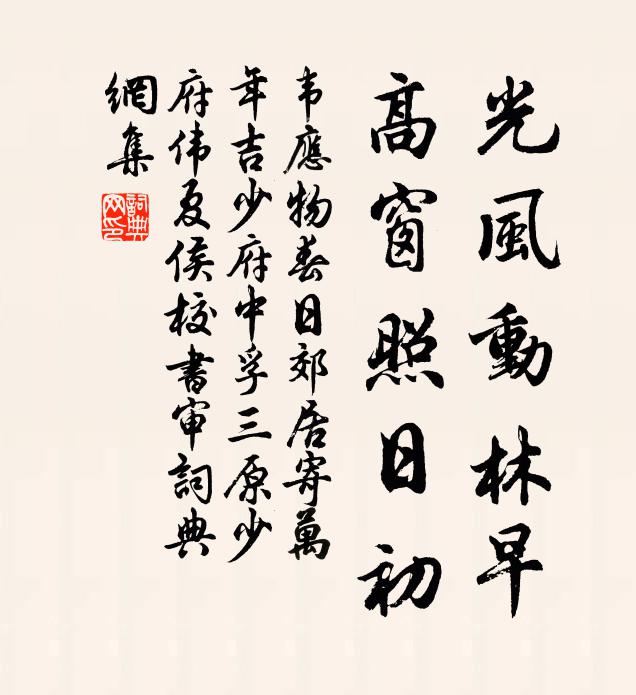 光風動林早
高窗照日初
韦應物春日郊居寄萬
年吉少府中孚三原少
府伟夏侯校書审詞典
網集
詞典网印